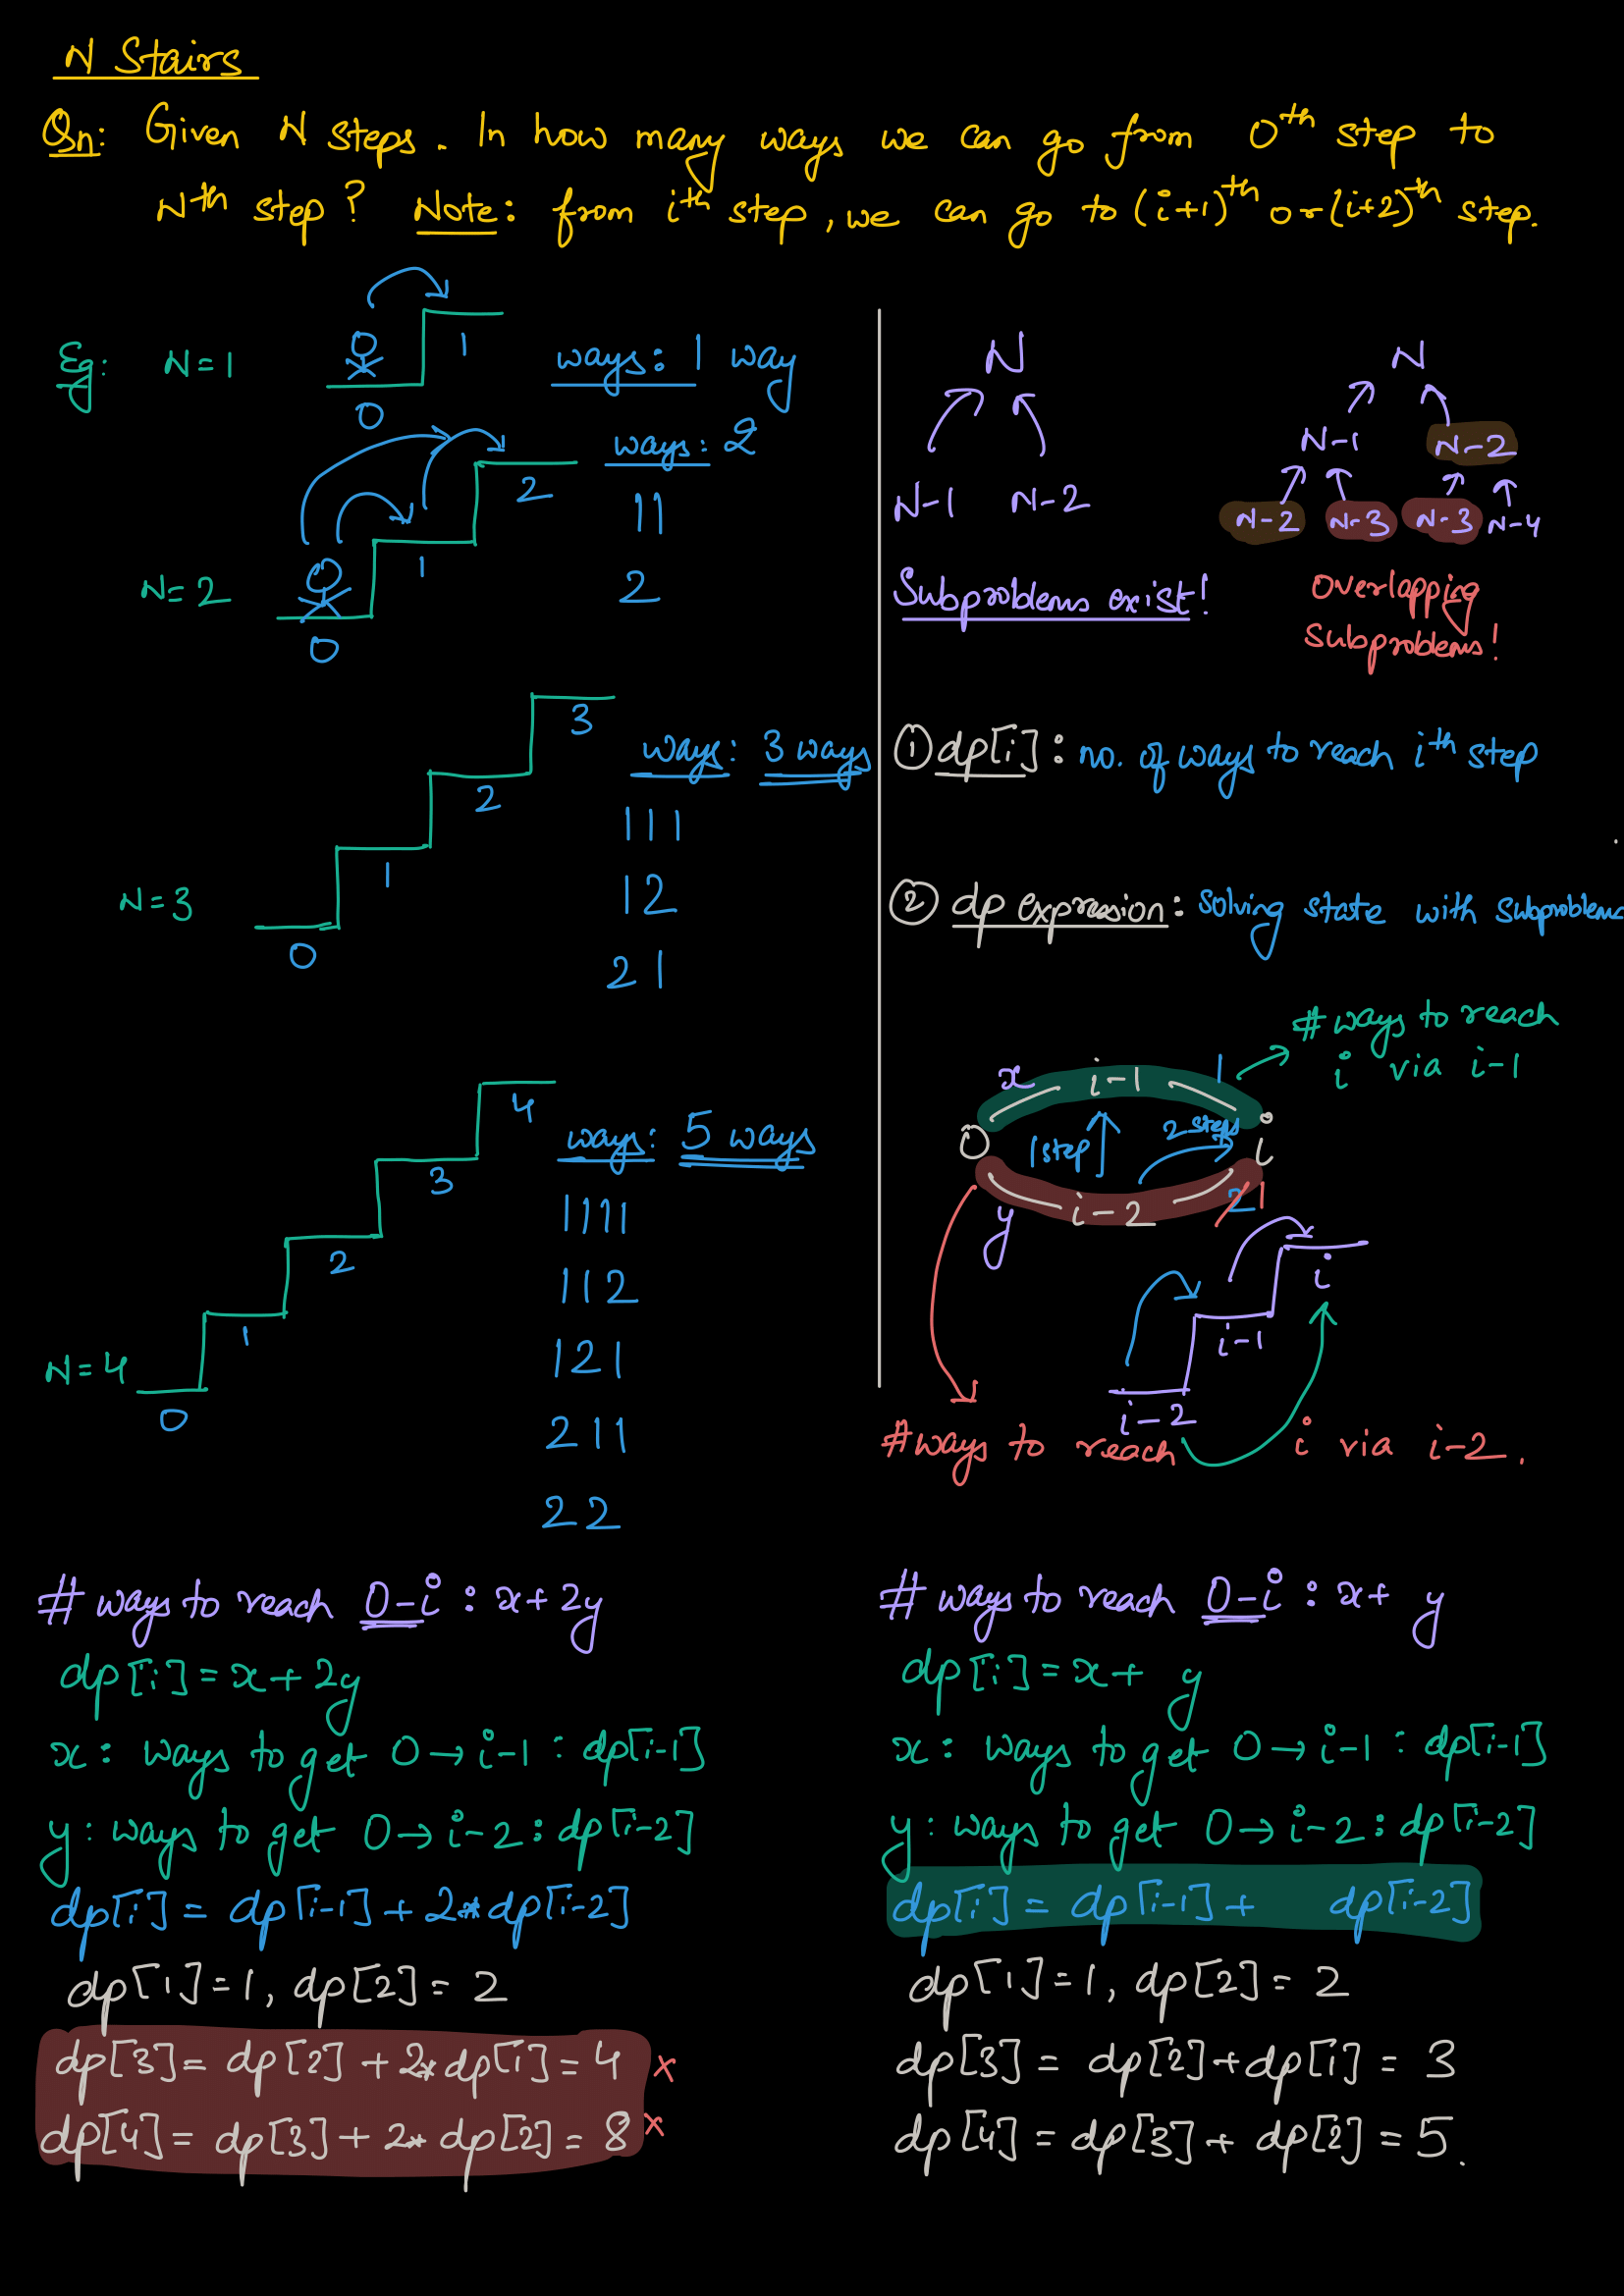 N Stairs
Qn: Given N steps. In how many ways we can go from 0th step to
Nth step? Note: from ith step, we can go to (i+1)th or (i+2)th step.
Eg: N=1
0
1
ways: 1 way
N=2
0
1
2
ways: 2
11
2
N=3
0
1
2
3
ways: 3 ways
111
12
21
N=4
0
1
2
3
4
ways: 5 ways
1111
112
121
211
22
N
N-1 N-2
Subproblems exist!
N
N-1 N-2
N-2 N-3 N-3 N-4
Overlapping
Subproblems!
① dp[i]: no. of ways to reach ith step
② dp expression: solving state with subproblems
# ways to reach
i via i-1
x i-1 1
0 1 step 2 steps i
y i-2 2 1
i
i-1
i-2
# ways to reach i via i-2.
# ways to reach 0-i : x+2y
dp[i] = x+2y
x: ways to get 0→i-1 : dp[i-1]
y: ways to get 0→i-2 : dp[i-2]
dp[i] = dp[i-1] + 2*dp[i-2]
dp[1]=1, dp[2]=2
dp[3]= dp[2] + 2*dp[i] = 4 x
dp[4]= dp[3] + 2*dp[2] = 8 x
# ways to reach 0-i : x+ y
dp[i] = x+ y
x: ways to get 0→i-1 : dp[i-1]
y: ways to get 0→i-2 : dp[i-2]
dp[i] = dp[i-1] + dp[i-2]
dp[1]=1, dp[2]=2
dp[3] = dp[2]+dp[i] = 3
dp[4] = dp[3] + dp[2] = 5.